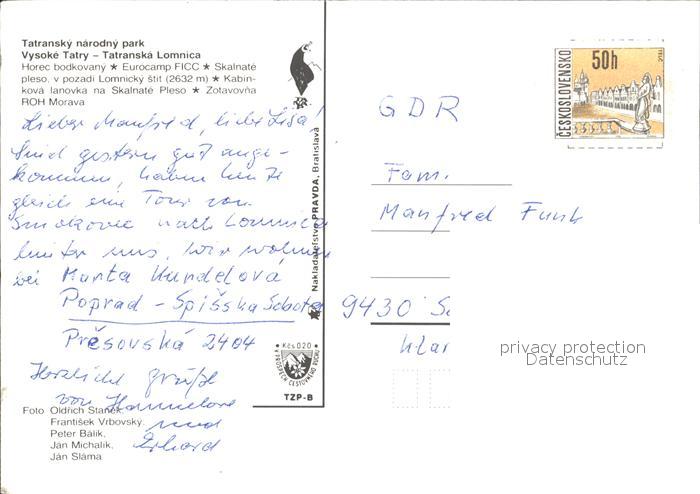 Tatranský národný park
Vysoké Tatry – Tatranská Lomnica
Horec bodkovaný ★ Eurocamp FICC ★ Skalnaté
pleso, v pozadí Lomnický štít (2632 m) ★ Kabín-
ková lanovka na Skalnaté Pleso ★ Zotavovňa
ROH Morava
Lieber Manfred, liebe Lisa!
Sind gestern gut ange-
kommen, haben heute
gleich eine Tour von
Smokovec nach Lomnica
hinter uns. Wir wohnen
bei Marta Kundelová
Poprad – Spišska Sobota
Prěsovská 2404
Herzliche Grüße
von Hannelore
und
Erhard
Foto Oldřich Staněk,
František Vrbovský,
Peter Bálik,
Ján Michalík,
Ján Sláma
Nakladateľstvo PRAVDA, Bratislava
Kčs 0,20
V PROSPECH CESTOVNÉHO RUCHU
TZP-B
ČESKOSLOVENSKO
50h
TELČ
GDR
Fam.
Manfred Funk
9430 Sc
klar
privacy protection
Datenschutz